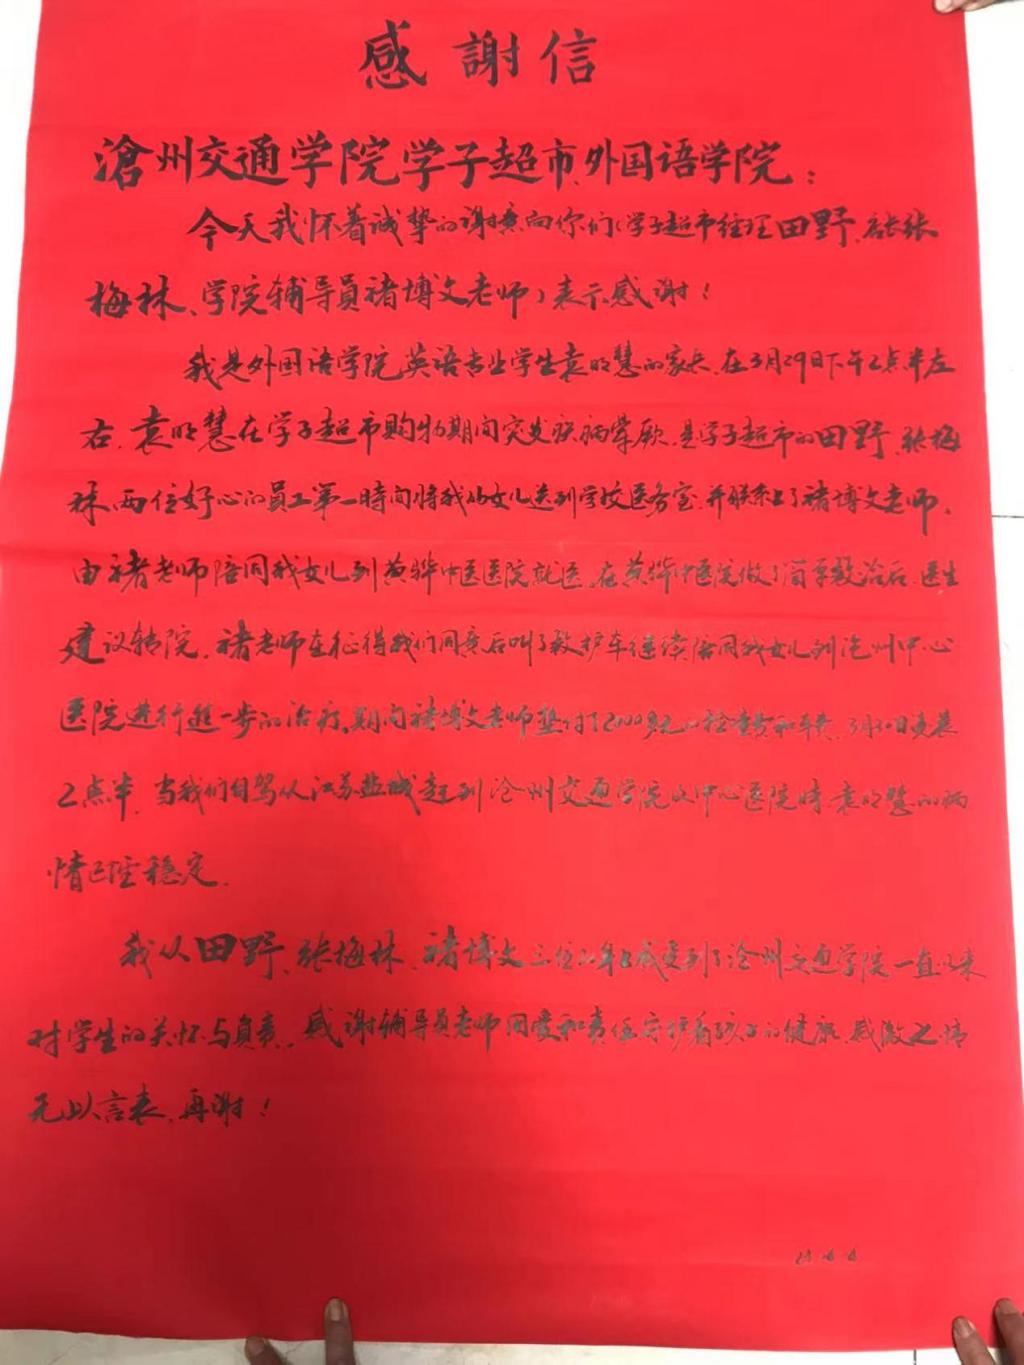 感謝信
滄州交通学院学子超市、外国语学院：
今天我怀着诚挚的谢意向你们（学子超市经理田野、店长张
梅林、学院辅导员褚博文老师）表示感谢！
我是外国语学院英语专业学生袁明慧的家长，在3月29日下午2点半左
右，袁明慧在学子超市购物期间突发疾病晕厥，是学子超市的田野、张梅
林两位好心的员工第一時间将我的女儿送到学校医务室，并联系上了褚博文老师，
由褚老师陪同我女儿到黄骅中医医院就医，在黄骅中医院做了简单救治后，医生
建议转院，褚老师在征得我们同意后叫了救护车继续陪同我女儿到沧州中心
医院进行進一步的治疗，期间褚博文老师垫付了2000多元的检查费和车费，3月30日凌晨
2点半，当我们自驾从江苏盐城赶到沧州交通学院及中心医院時袁明慧的病
情已经稳定。
我从田野、张梅林、褚博文三位身上感受到了沧州交通学院一直以来
对学生的关怀与負责，感谢辅导员老师用爱和责任守护着孩子的健康，感激之情
无以言表，再谢！